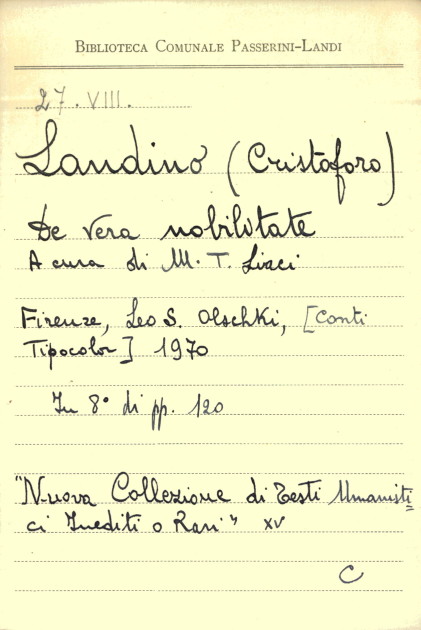 BIBLIOTECA COMUNALE PASSERINI-LANDI
27. VIII.
Landino (Cristoforo)
De vera nobilitate
A cura di M. T. Liaci
Firenze, Leo S. Olschki, [Conti
Tipocolor] 1970
In 8° di pp. 120
"Nuova Collezione di Testi Umanisti=
ci Inediti o Rari" XV
C